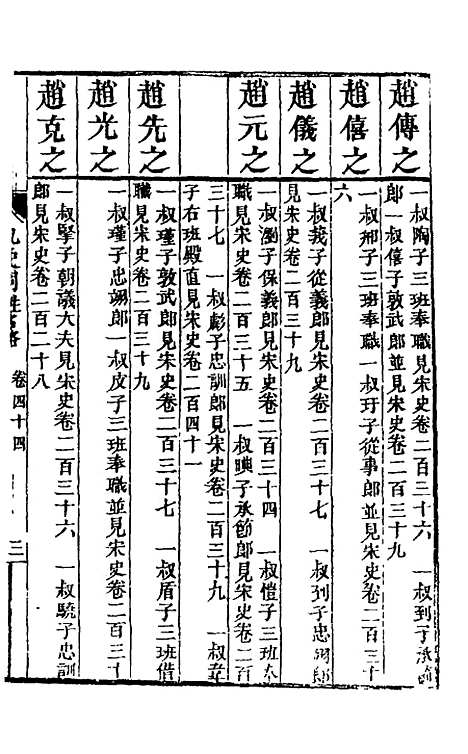 趙傳之
一叔陶子三班奉職見宋史卷二百三十六　一叔到子承節
郎一叔僖子敦武郎並見宋史卷二百三十九
趙僖之
一叔郁子三班奉職一叔玗子從事郎並見宋史卷二百三十
六
趙儀之
一叔莪子從義郎見宋史卷二百三十七　一叔列子忠訓郎
見宋史卷二百三十九
趙元之
一叔瀏子保義郎見宋史卷二百三十四　一叔愷子三班奉
職見宋史卷二百三十五　一叔㬒子承節郎見宋史卷二百
三十七　一叔彪子忠訓郎見宋史卷二百三十九　一叔韋
子右班殿直見宋史卷二百四十一
趙先之
一叔瑾子敦武郎見宋史卷二百三十七　一叔盾子三班借
職見宋史卷二百三十九
趙光之
一叔瑾子忠翊郎一叔皮子三班奉職並見宋史卷二百三十
趙克之
一叔掔子朝議大夫見宋史卷二百三十六　一叔驍子忠訓
郎見宋史卷二百二十八
九史同姓名略　卷四十四　三